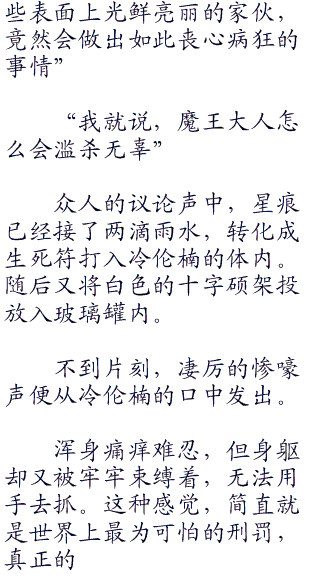 些表面上光鲜亮丽的家伙，
竟然会做出如此丧心病狂的
事情”
“我就说，魔王大人怎
么会滥杀无辜”
众人的议论声中，星痕
已经接了两滴雨水，转化成
生死符打入冷伦楠的体内。
随后又将白色的十字硕架投
放入玻璃罐内。
不到片刻，凄厉的惨嚎
声便从冷伦楠的口中发出。
浑身痛痒难忍，但身躯
却又被牢牢束缚着，无法用
手去抓。这种感觉，简直就
是世界上最为可怕的刑罚，
真正的